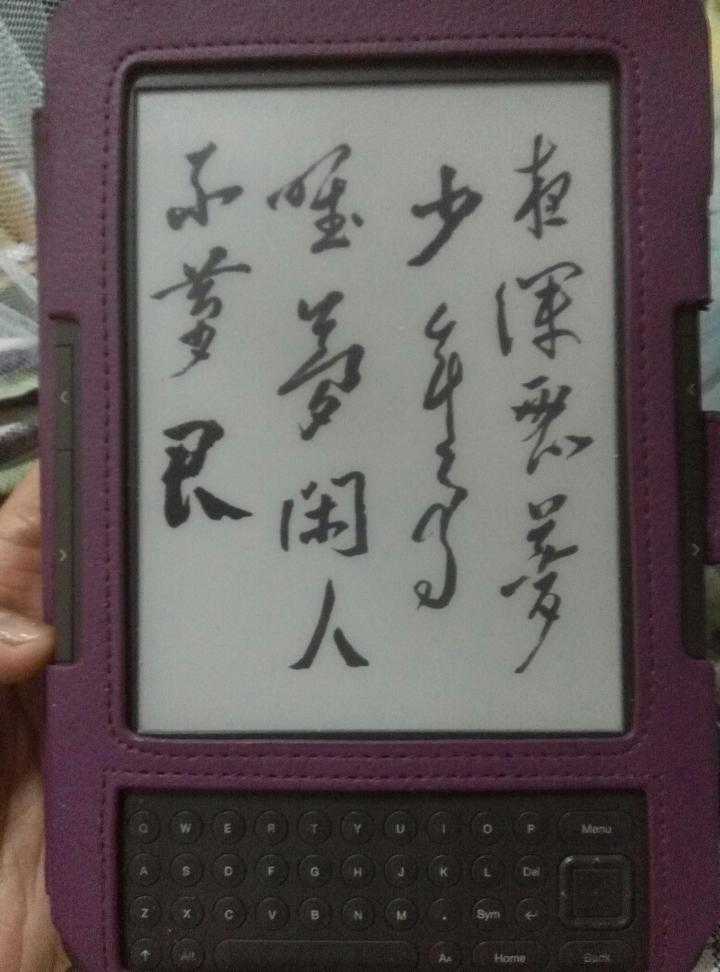 夜深忽夢
少年事
唯夢閑人
不夢君
Q W E R T Y U I O P Menu
A S D F G H J K L Del
Z X C V B N M . Sym
Alt Aa Home Back